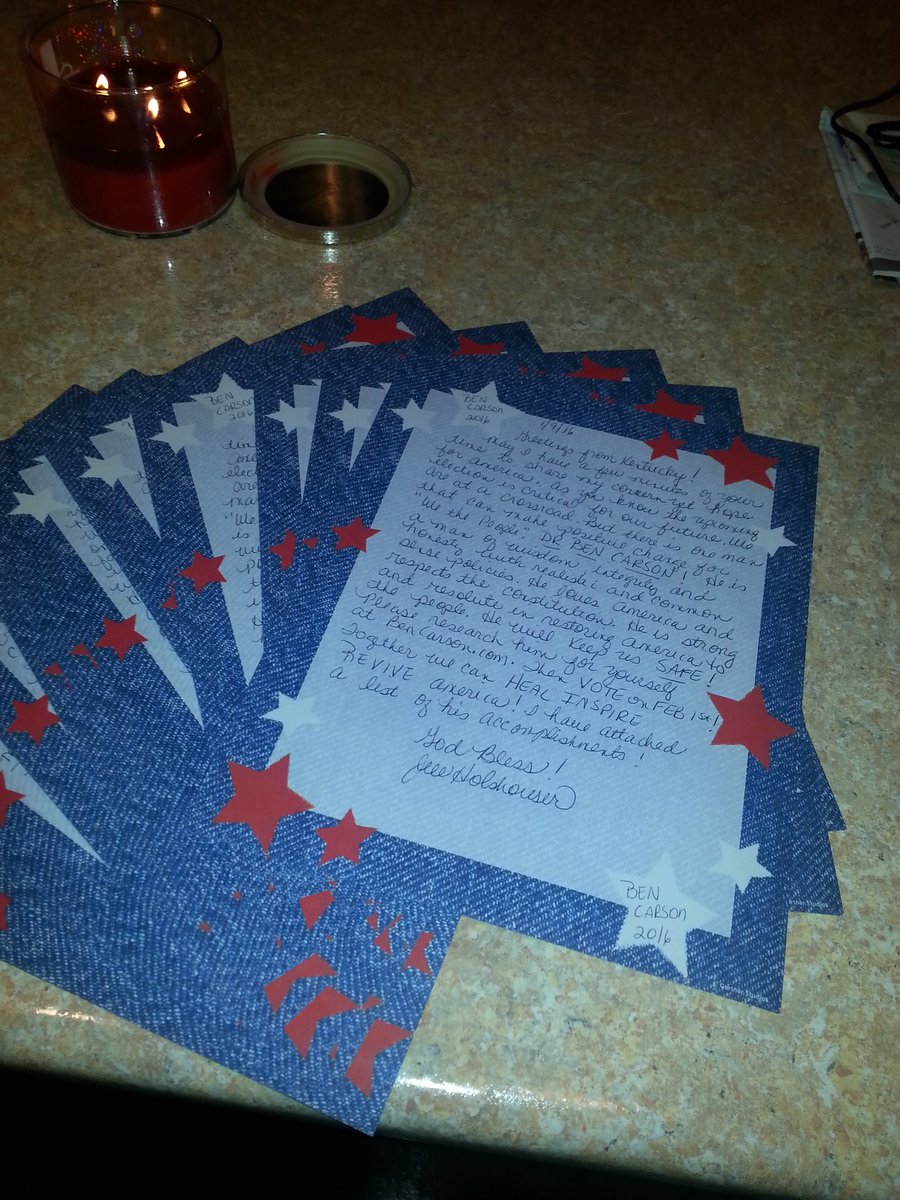 BEN
CARSON
2016
1/9/16
Greetings from Kentucky!
May I have a few minutes of your
time to share my concern yet hope
for america. as you know the upcoming
election is critical for our future. We
are at a crossroad. But there is one man
that can make positive change for
"We the People". DR BEN CARSON! He is
a man of wisdom, integrity, and
honesty with realistic and common
sense policies. He loves America and
respects the constitution. He is strong
and resolute in restoring america to
the people. He will keep us SAFE!
Please research him for yourself
at BenCarson.com. Then VOTE on FEB 1st!
Together we can HEAL INSPIRE
REVIVE america! I have attached
a list of his accomplishments!
God Bless!
Holshouser
BEN
CARSON
2016
BEN
CARSON
2016
"We
is